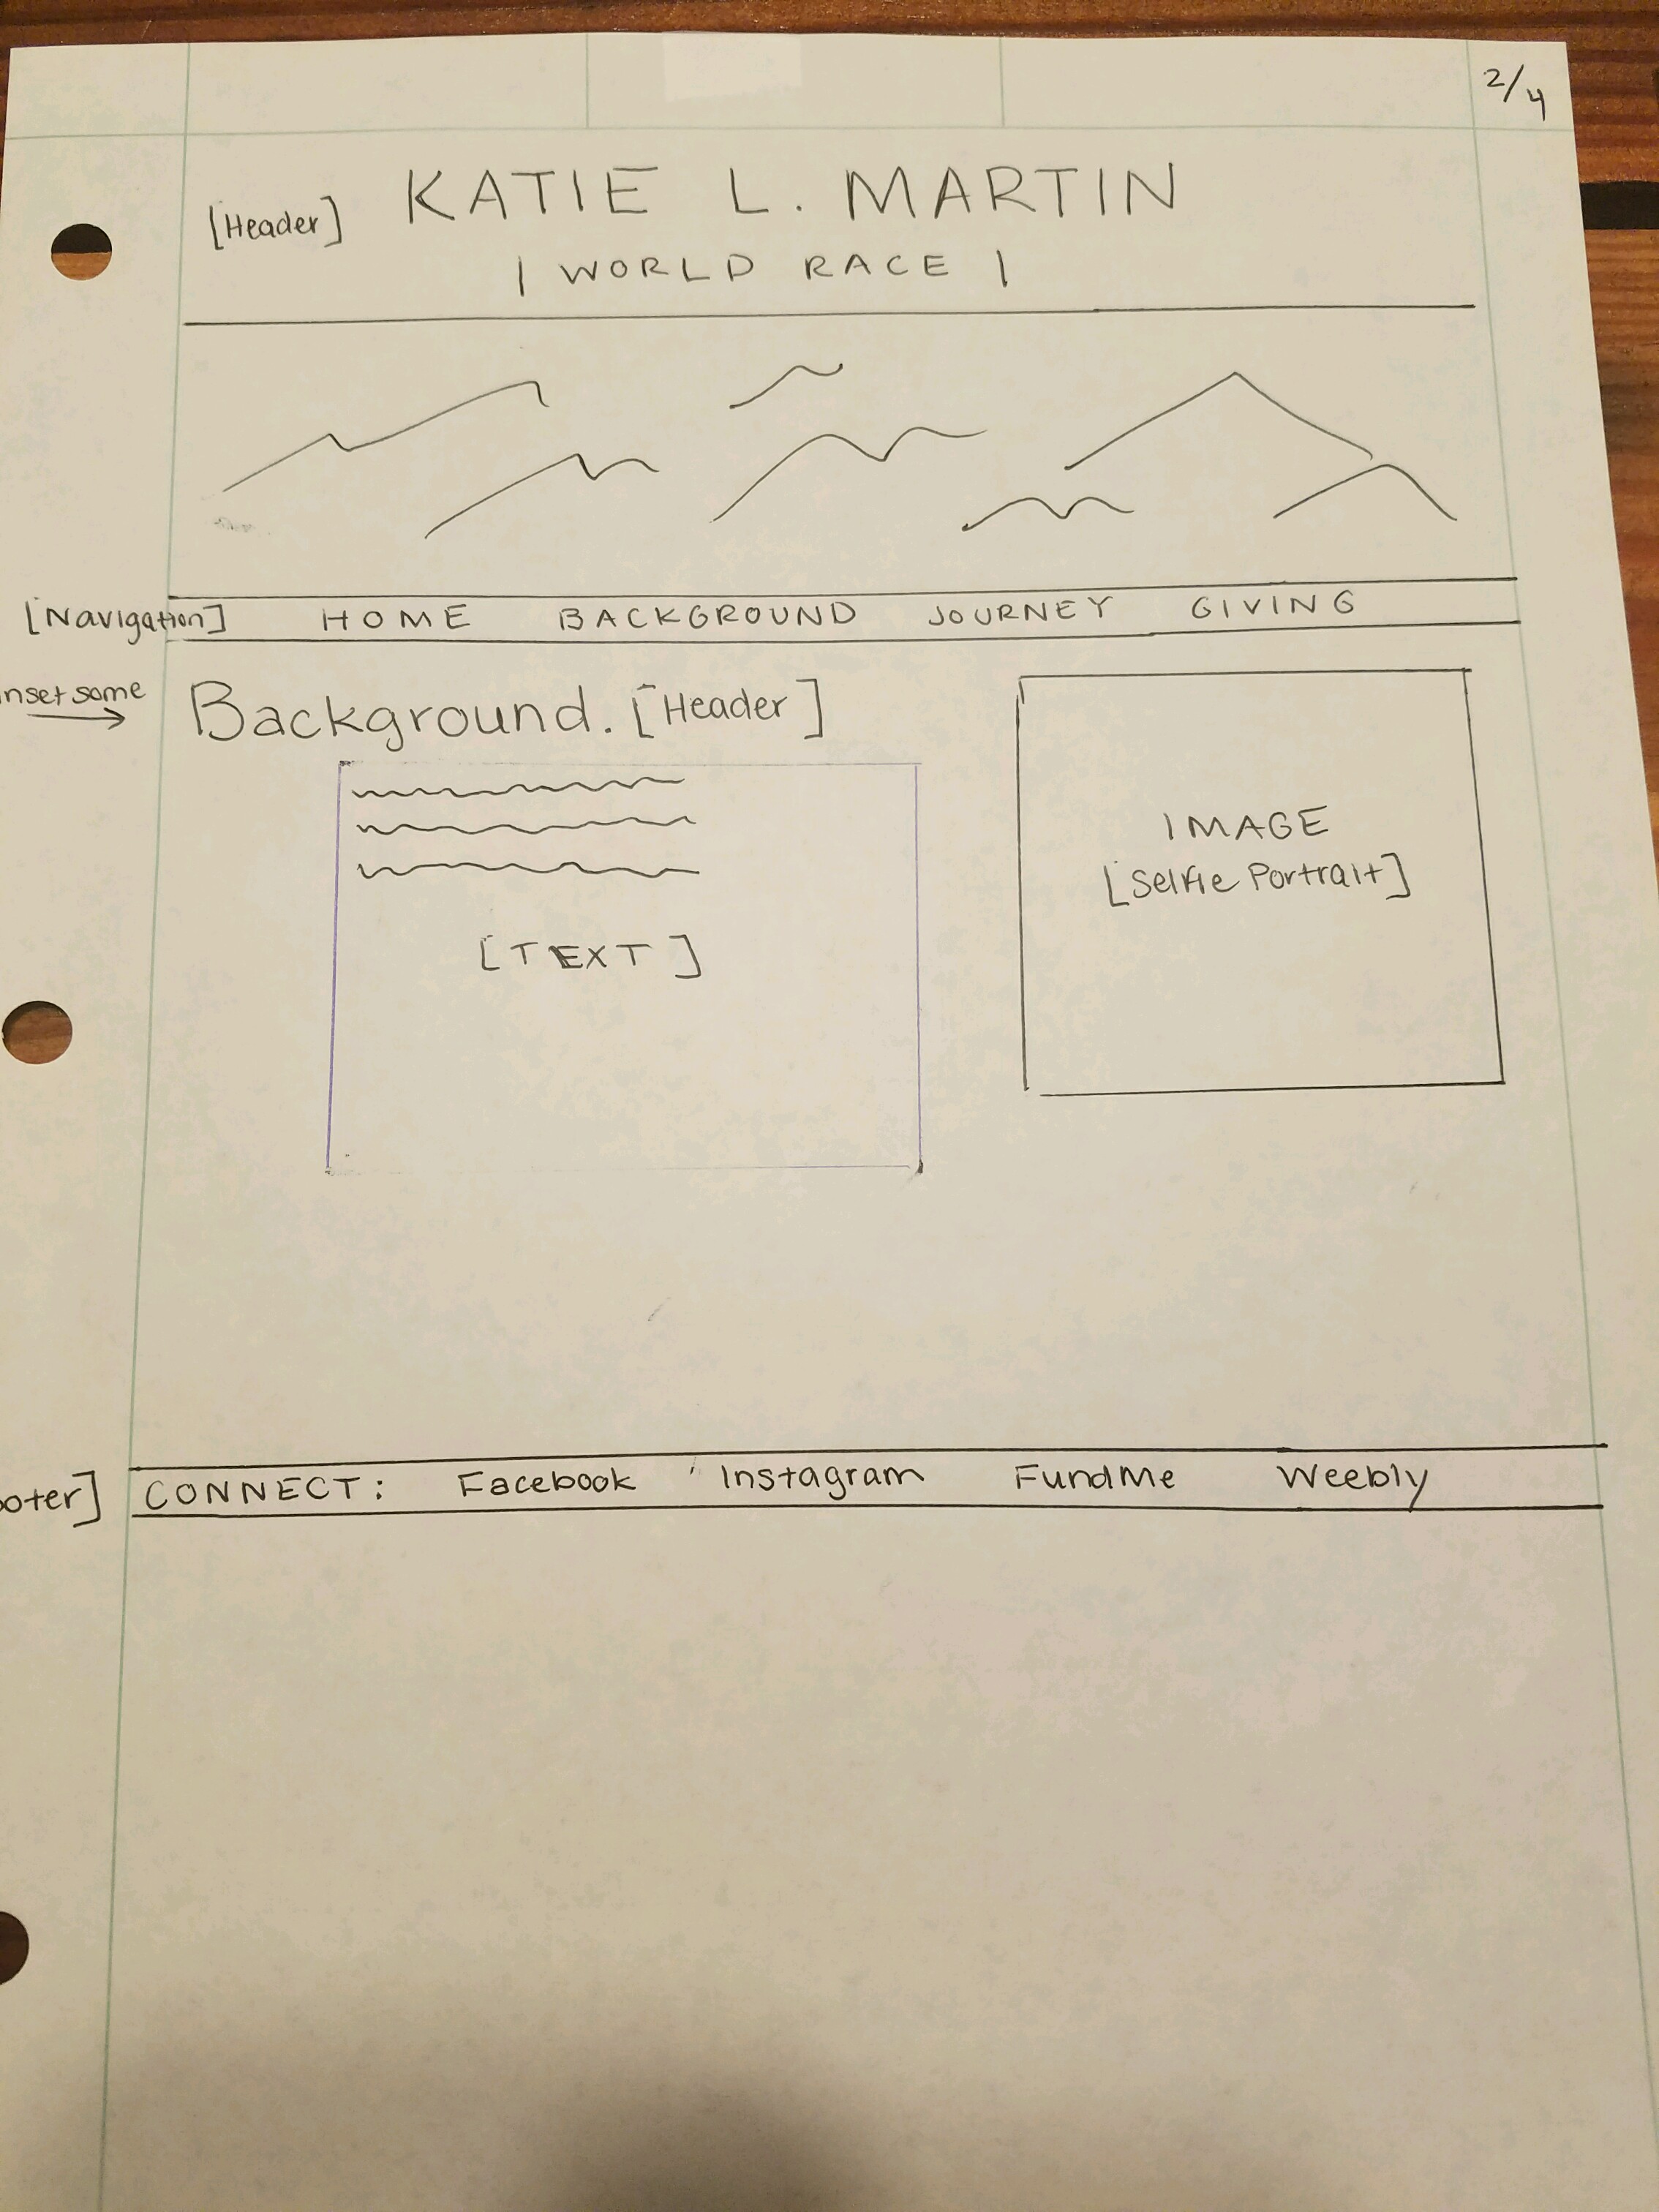 2/4
[Header] KATIE L. MARTIN
| WORLD RACE |
[Navigation] HOME BACKGROUND JOURNEY GIVING
some
Background. [Header]
[TEXT]
IMAGE
[Selfie Portrait]
CONNECT: Facebook Instagram FundMe Weebly